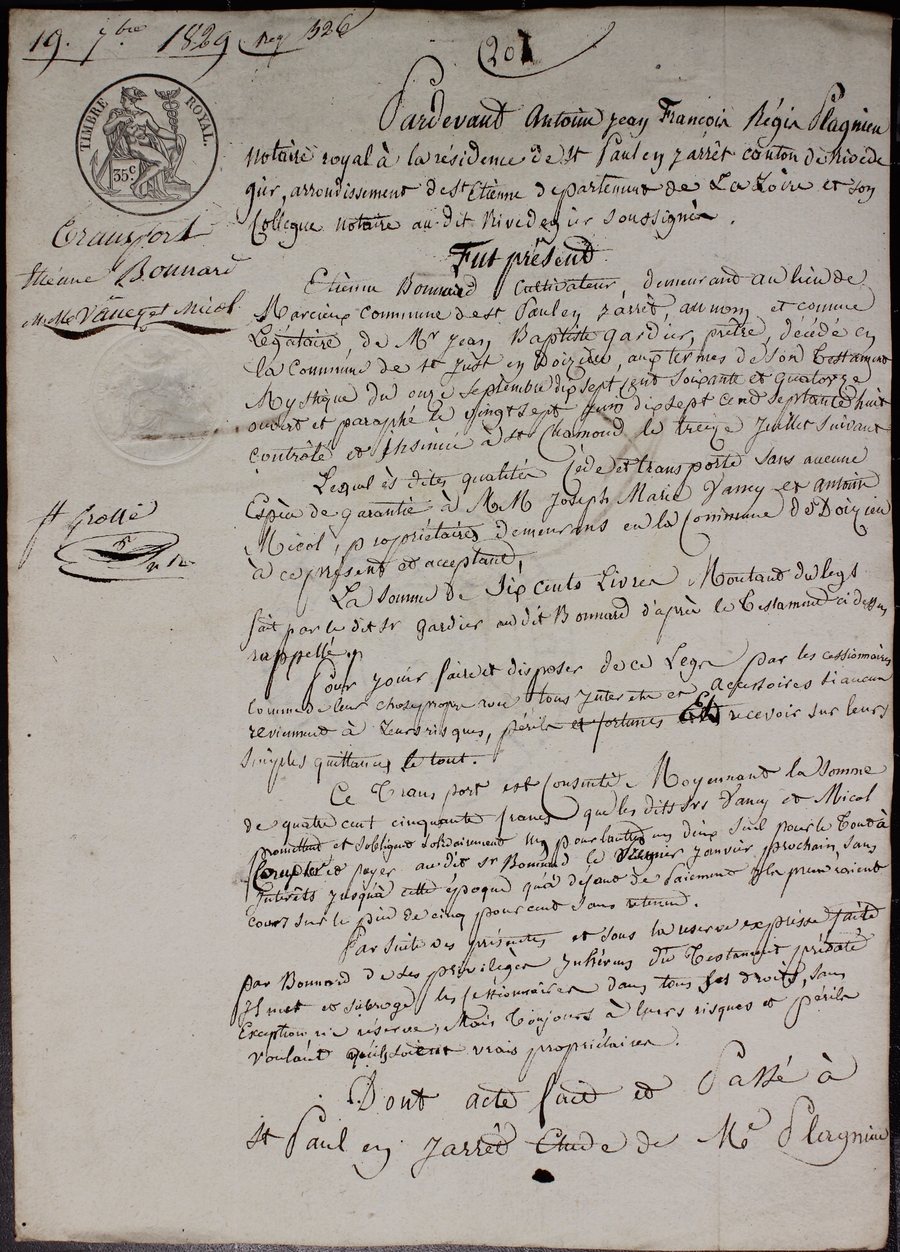 19. 7bre 1829 Reg 326
201
TIMBRE ROYAL.
35c
Transport
Etiénne Bonnard
à MM Vancy et Micol
ft Grossé
Pardevant Antoine jean François Régis Plagnieu
notaire royal à la résidence de St Paul en jarrêt canton de Rivede
gier, arrondissement de St Etienne departement de La Loire et son
Collegue notaire au dit Rivedegier soussignés.
Fut présent
Etiénne Bonnard Cultivateur demeurant au lieu de
Marcieux Commune de st Paul en jarrêt, au nom et comme
Légataire, de Mr jean Baptiste gardier, prêtre, décédé en
la Commune de st Just en Doizieu, aux termes de son testament
Mystique du onze septembre dix sept cent soixante et quatorze
ouvert et paraphé le vingt sept juin dix sept cent septante huit
contrôlé et insinué à st Chamond le treize juillet suivant
Lequel ès dites qualités Cède et transporte sans aucune
Espèce de garantie à MM joseph Marie Vancy et antoine
Micol, propriétaires demeurans en la Commune de Doizieu
à ce présent et acceptant,
La somme de six cents Livres Montant du legs
fait par le dit Sr gardier au dit Bonnard d'après le testament ci dessus
rappellé.
Pour jouir faire et disposer de ce Legs par les cessionnaires
comme de leur chose propre avec tous interets et accessoires si aucun
reviennent à Leurs risques, périls et fortunes Et recevoir sur leurs
simples quittances le tout.
Ce Transport est Consenti Moyennant la somme
de quatre cent cinquante francs que les dits srs Vancy et Micol
promettent et s'obligent solidairement un pour l'autre un deux seul pour le tout à
Compter et payer au dit sr Bonnard le premier janvier prochain, sans
interêts jusqu'à cette époque qu'à défaut de paiement ils prendroient
cours sur le pied de cinq pour cent sans retenue.
Par suite des présentes et sous la reserve expresse faite
par Bonnard de ses privilèges inhérens du Testament prédaté
Il met et subroge les Cessionnaires dans tous ses droits, sans
Exception ni réserve, Mais toujours à leurs risques et périls
voulant qu'ils soient vrais propriétaires.
Dont acte fait et Passé à
st Paul en jarrêt Etude de Me Plagnieu